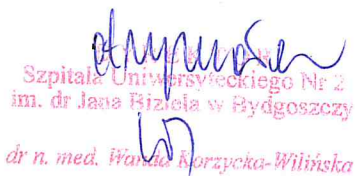 Szpitala Uniwersyteckiego Nr 2
im. dr Jana Biziela w Bydgoszczy
dr n. med. Wanda Korzycka-Wilińska